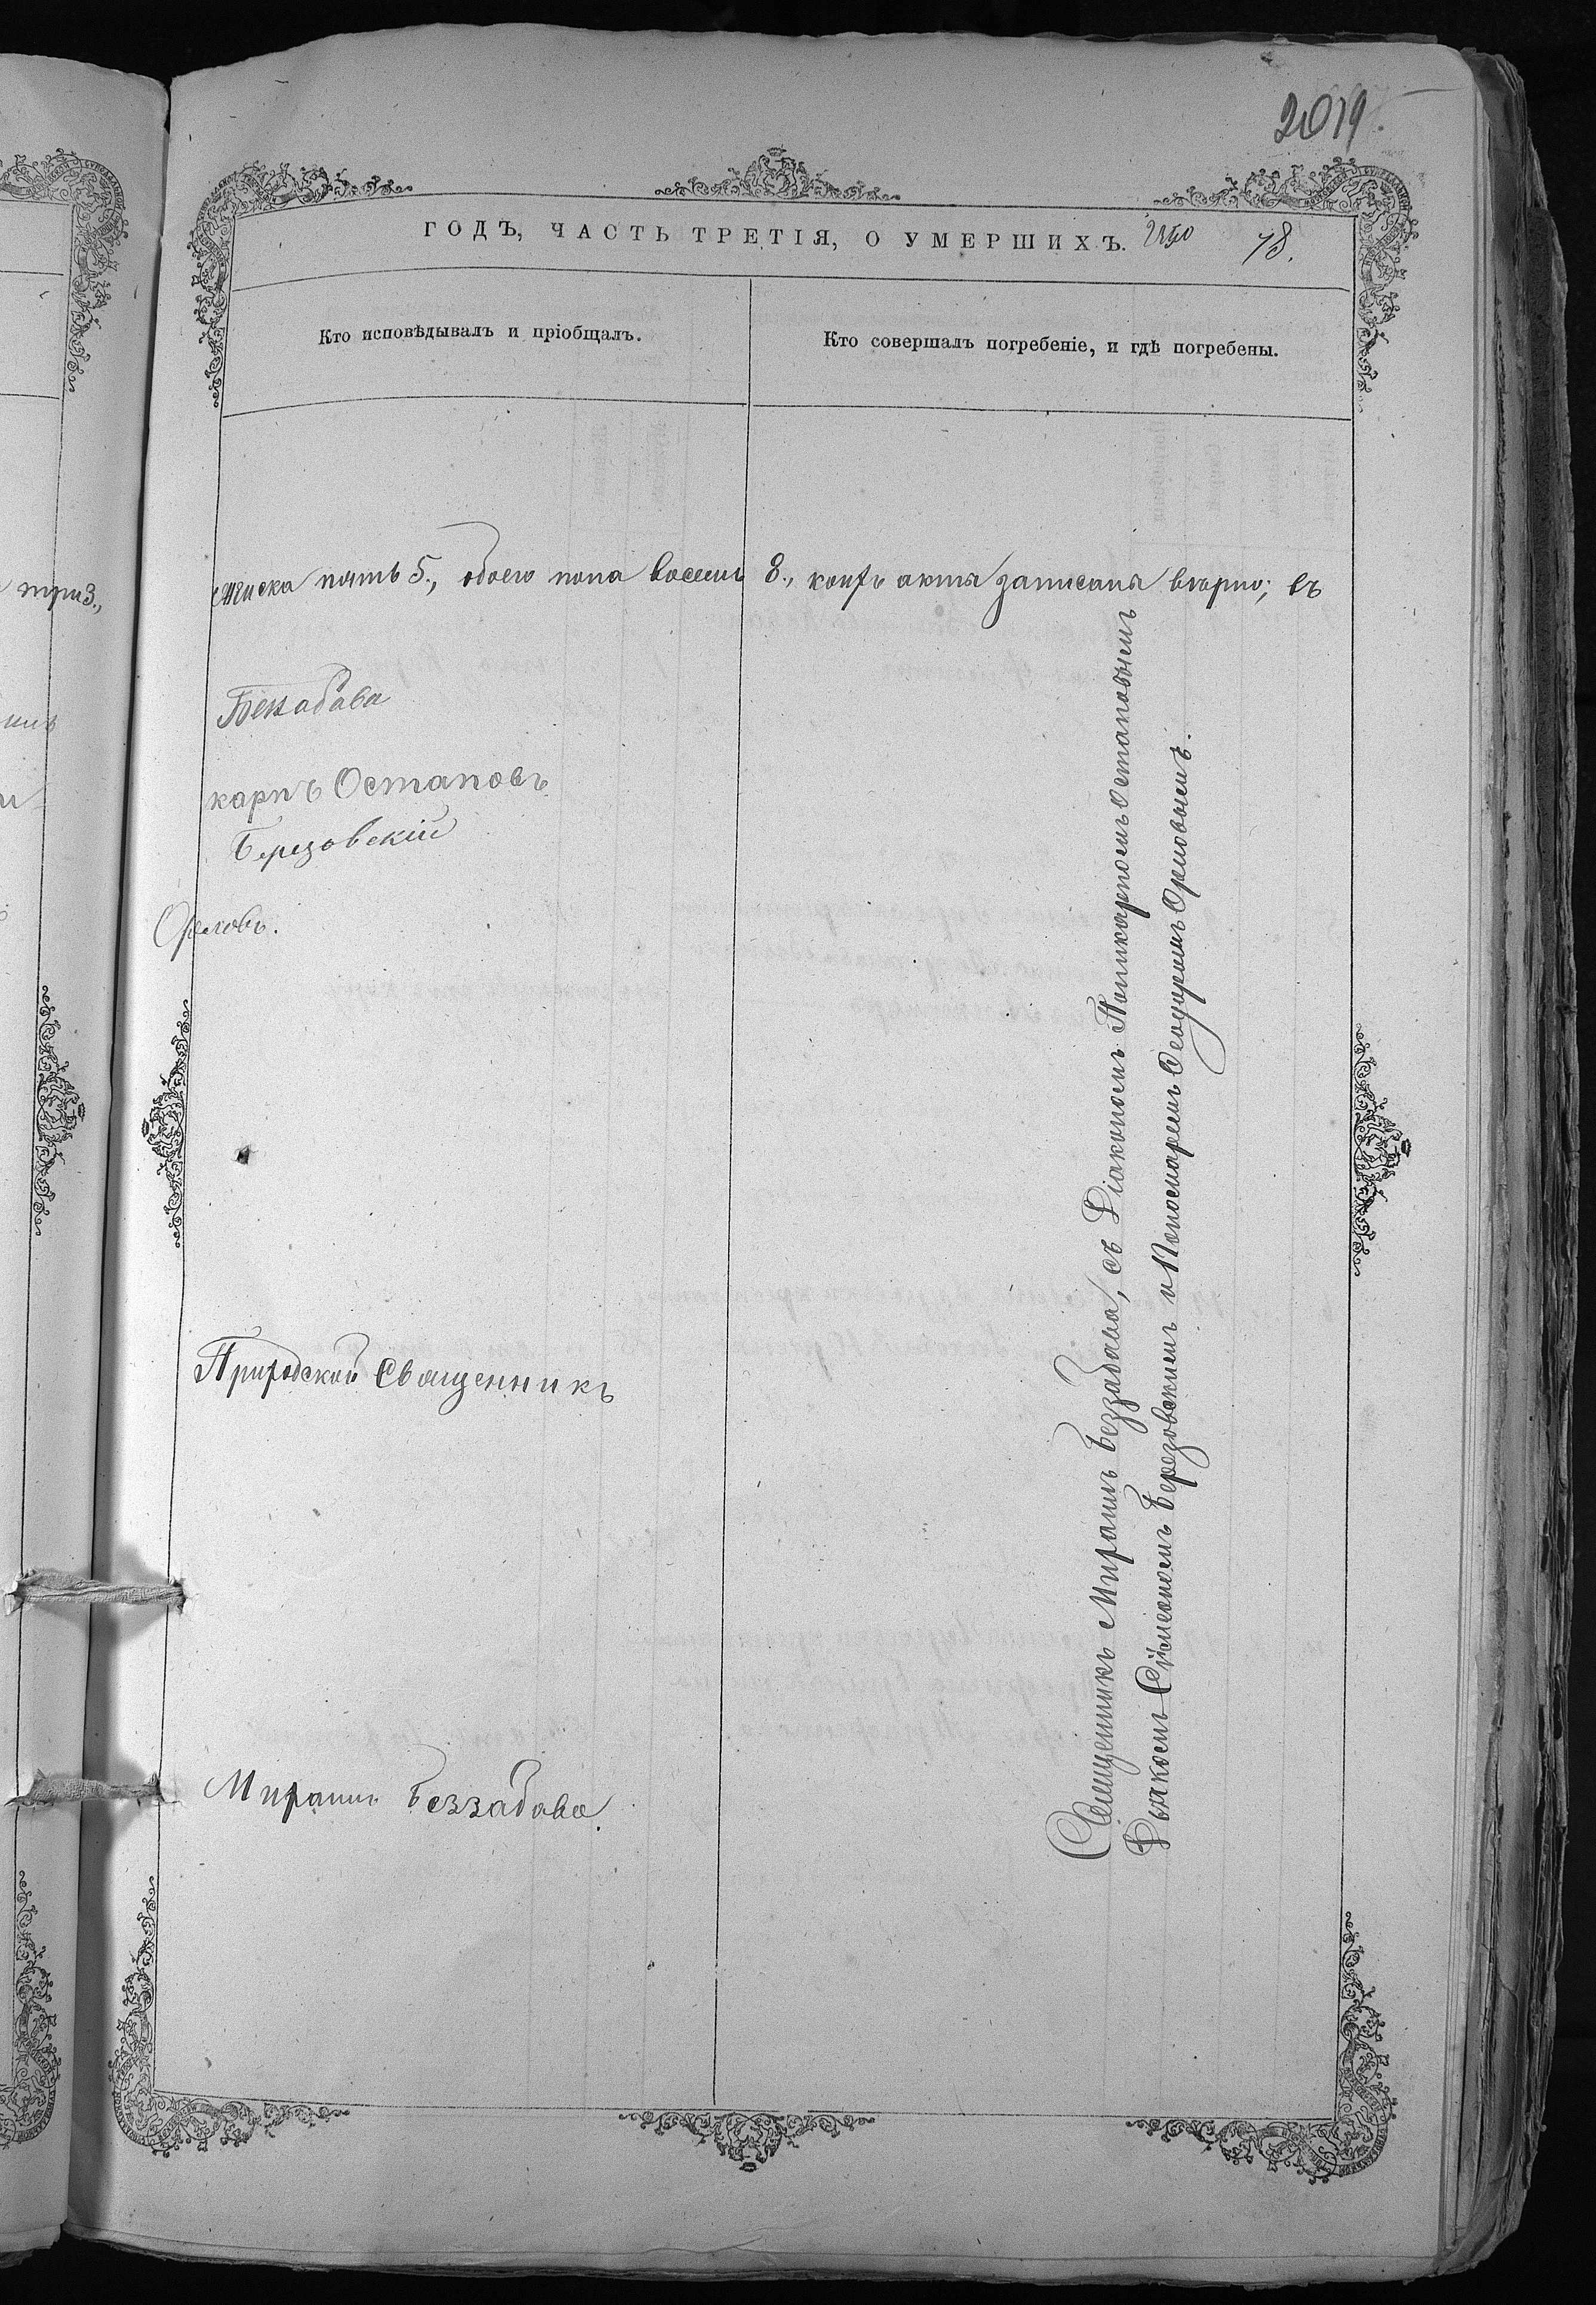 2019
ГОДЪ, ЧАСТЬ ТРЕТІЯ, О УМЕРШИХЪ.
78.
Кто исповѣдывалъ и пріобщалъ.
Кто совершалъ погребеніе, и гдѣ погребены.
три 3.,
женска пять 5., обоего пола восемь 8., коихъ акты записаны вѣрно; въ
Беззабава
карпъ Остаповъ
Березовскій
Орловъ.
Приходской Священникъ
Михаилъ Беззабава.
Священникъ Михаилъ Беззабава, съ Діакономъ Поликарпомъ Остаповымъ
Дьякомъ Сімеономъ Березовскимъ и Пономаремъ Ѳеодоромъ Орловымъ.